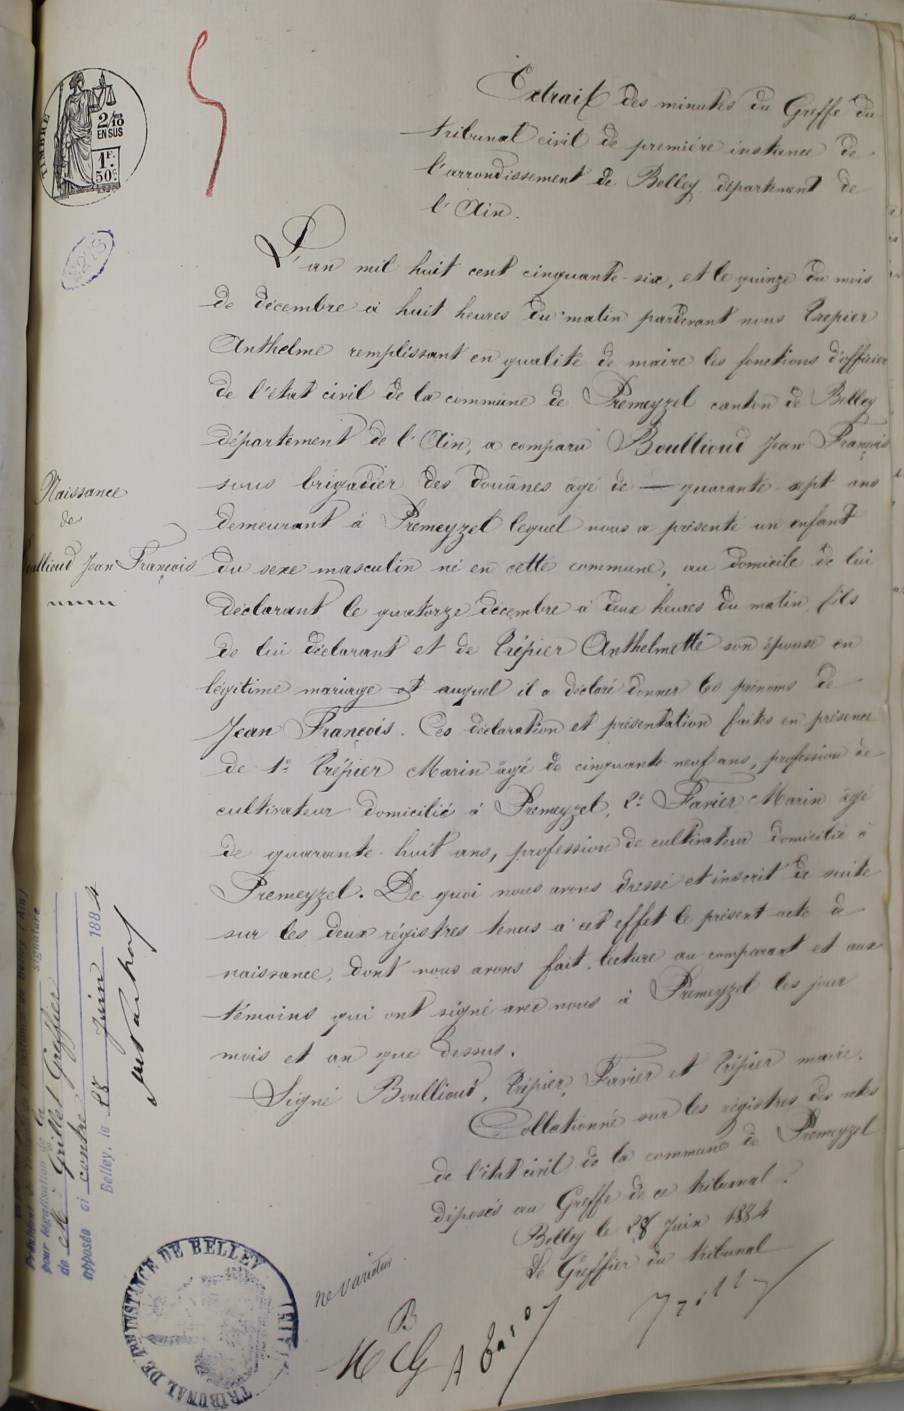 TIMBRE
2/10 EN SUS
1F. 50c
Extrait des minutes du Greffe du
tribunal civil de première instance de
l'arrondissement de Belley département de
l'Ain.
L'an mil huit cent cinquante-six, et le quinze du mois
de décembre à huit heures du matin pardevant nous Trépier
Anthelme remplissant en qualité de maire les fonctions d'officier
de l'état civil de la commune de Premeyzel canton de Belley
département de l'Ain, a comparu Boullioud Jean François
sous brigadier des douânes âgé de — quarante-sept ans
demeurant à Premeyzel lequel nous a présenté un enfant
du sexe masculin né en cette commune, au domicile de lui
déclarant le quatorze décembre à deux heures du matin, fils
de lui déclarant et de Trépier Anthelmette son épouse en
légitime mariage et auquel il a déclaré donner les prénoms de
Jean François. Ces déclaration et présentation faites en présence
de 1º Trépier Marin âgé de cinquante neuf ans, profession de
cultivateur domicilié à Premeyzel, 2º Favier Marin âgé
de quarante-huit ans, profession de cultivateur domicilié à
Premeyzel. De quoi nous avons dressé et inscrit de suite
sur les deux régistres tenus à cet effet le présent acte de
naissance, dont nous avons fait lecture au comparant et aux
témoins qui ont signé avec nous à Premeyzel les jour
mois et an que dessus.
Signé Boullioud, Trépier, Favier et Trépier maire.
Collationné sur les régistres des actes
de l'état civil de la commune de Premeyzel
déposés au Greffe de ce tribunal.
Belley le 28 Juin 1884
Le Greffier du tribunal
Naissance
de
Boullioud Jean François
pour légalisation de la signature
de Me Grillet Greffier
apposée ci contre
Belley, le 28 Juin 1884
ne varietur
TRIBUNAL DE 1RE INSTANCE DE BELLEY (AIN)